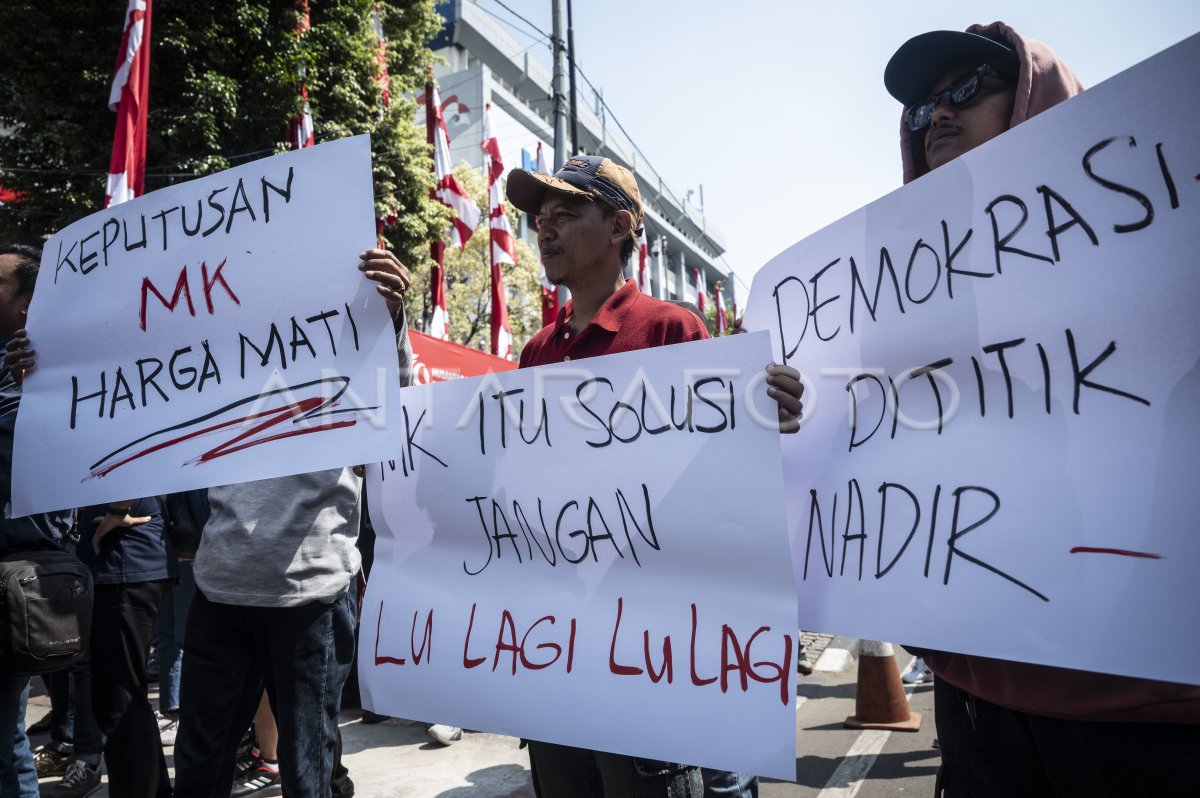 KEPUTUSAN
MK
HARGA MATI
MK ITU SOLUSI
JANGAN
LU LAGI LU LAGI
DEMOKRASI
DITITIK
NADIR -
ANTARAFOTO